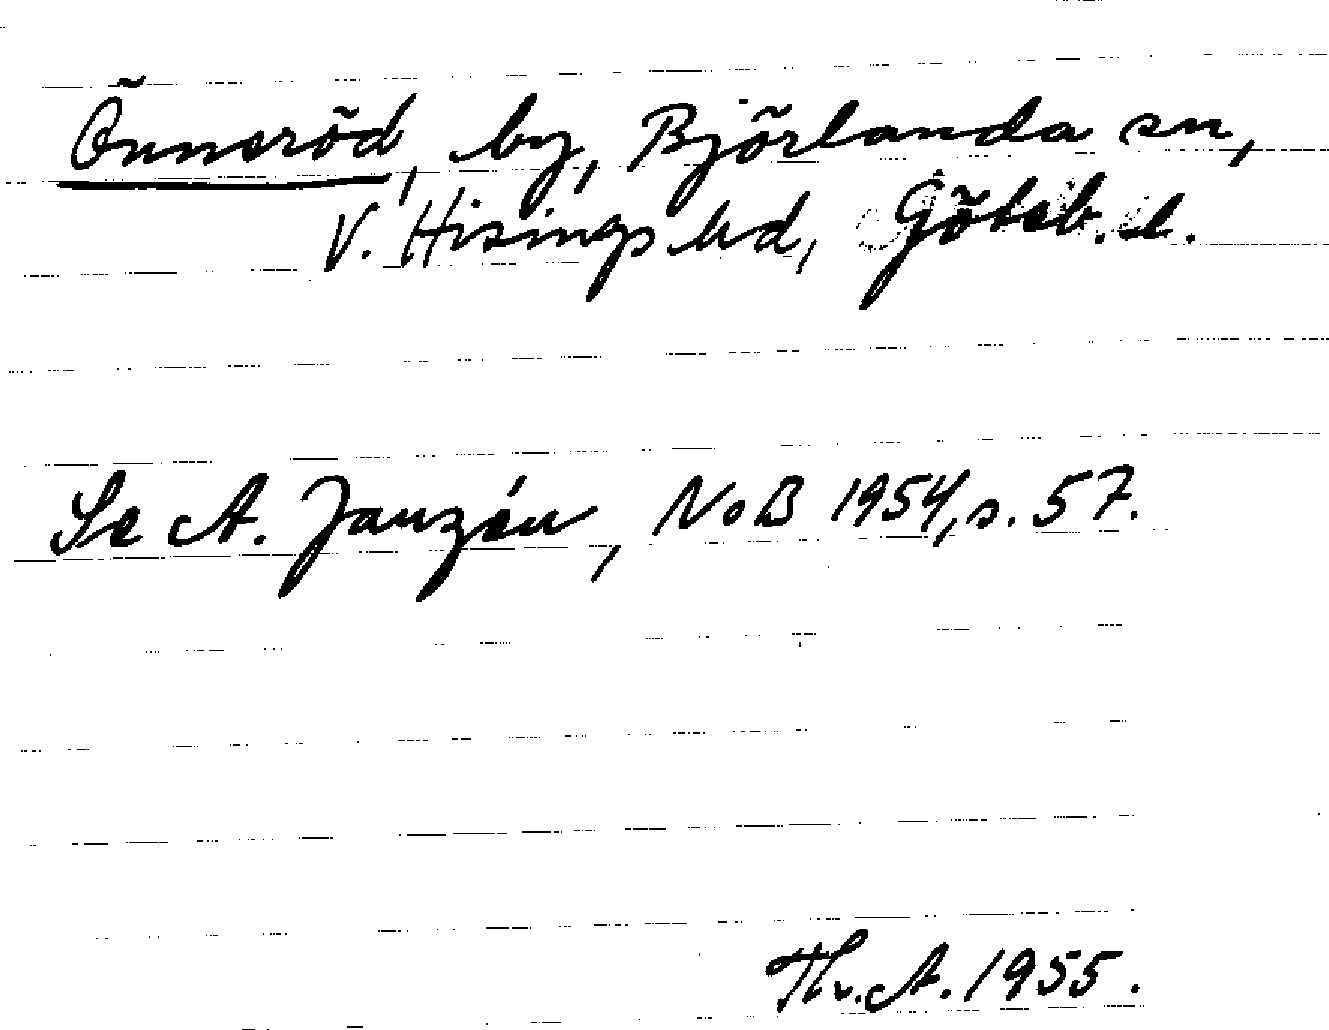 Önneröd, by, Björlanda sn,
V. Hisings hd, Göteb. l.
Se A. Janzén, NoB 1954, s. 57.
Th. A. 1955.